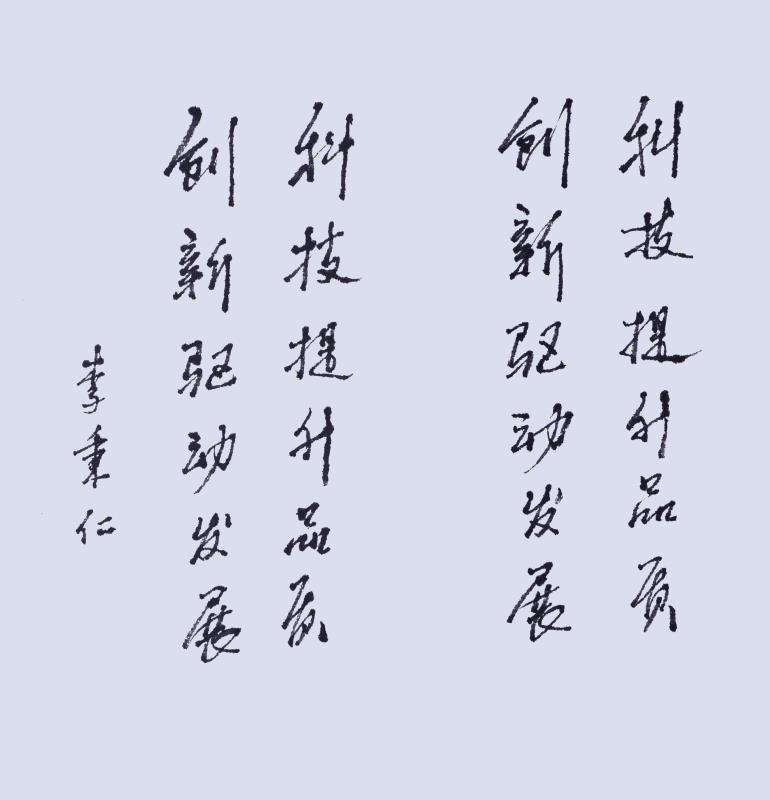 科技提升品质
创新驱动发展
科技提升品质
创新驱动发展
李秉仁